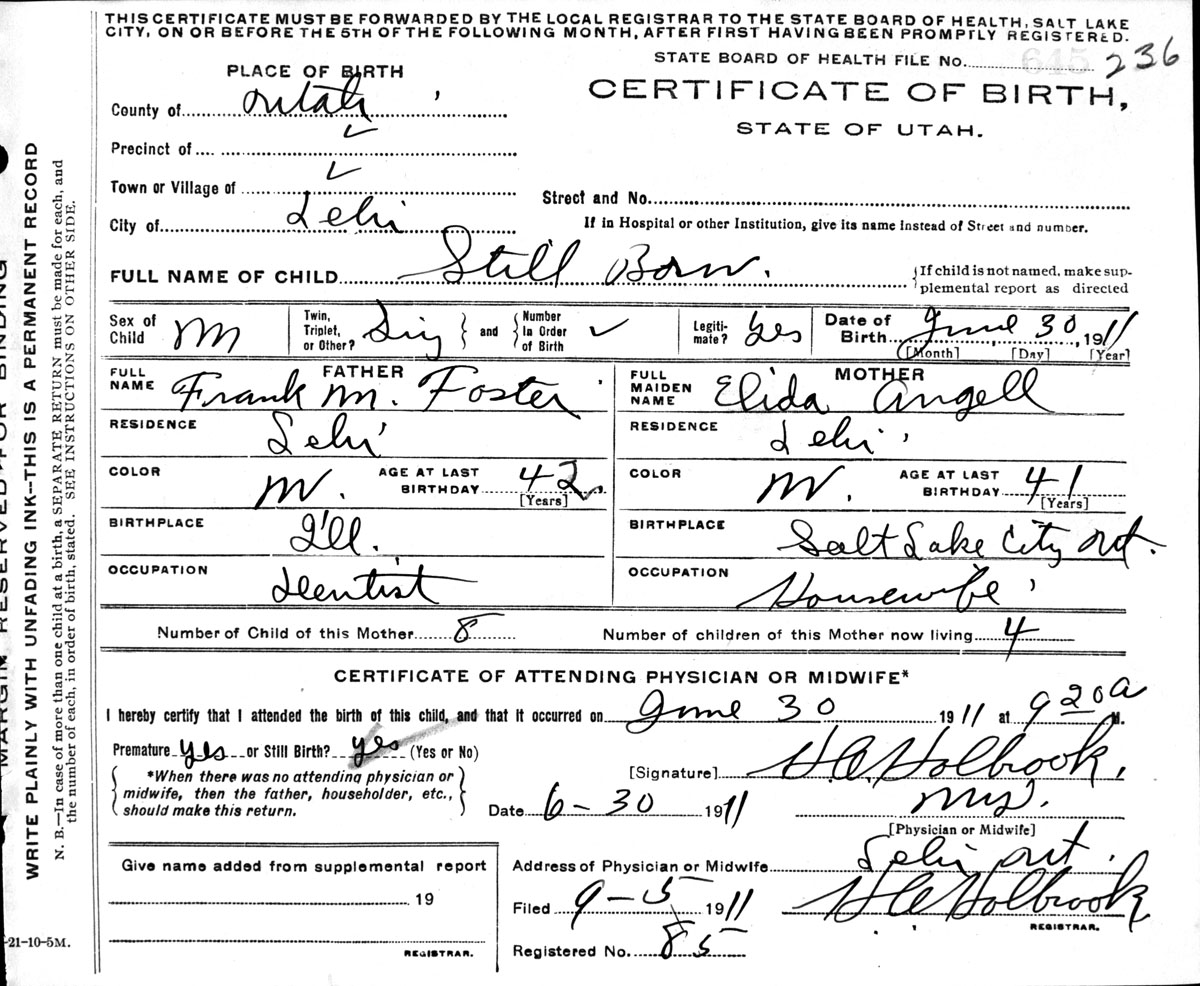 THIS CERTIFICATE MUST BE FORWARDED BY THE LOCAL REGISTRAR TO THE STATE BOARD OF HEALTH, SALT LAKE
CITY, ON OR BEFORE THE 5TH OF THE FOLLOWING MONTH, AFTER FIRST HAVING BEEN PROMPTLY REGISTERED.
STATE BOARD OF HEALTH FILE No. 645 236
PLACE OF BIRTH
CERTIFICATE OF BIRTH,
STATE OF UTAH.
County of Utah
Precinct of
Town or Village of
Street and No.
City of Lehi
If in Hospital or other Institution, give its name instead of Street and number.
FULL NAME OF CHILD Still Born.
{If child is not named, make sup-
plemental report as directed
Sex of Child M
Twin, Triplet, or Other? Sing } and { Number In Order of Birth
Legiti-mate? Yes
Date of Birth June 30, 1911
[Month] [Day] [Year]
FATHER
FULL NAME Frank M. Foster
RESIDENCE Lehi
COLOR W. AGE AT LAST BIRTHDAY 42
[Years]
BIRTHPLACE Ill.
OCCUPATION Dentist
MOTHER
FULL MAIDEN NAME Elida Angell
RESIDENCE Lehi
COLOR W. AGE AT LAST BIRTHDAY 41
[Years]
BIRTHPLACE Salt Lake City Ut.
OCCUPATION Housewife
Number of Child of this Mother 8 Number of children of this Mother now living 4
CERTIFICATE OF ATTENDING PHYSICIAN OR MIDWIFE*
I hereby certify that I attended the birth of this child, and that it occurred on June 30 1911 at 9 20 A M.
Premature yes or Still Birth? yes (Yes or No)
*When there was no attending physician or
midwife, then the father, householder, etc.,
should make this return.
[Signature] H.C. Holbrook,
Date 6-30 1911
MD.
[Physician or Midwife]
Give name added from supplemental report
19
REGISTRAR.
Address of Physician or Midwife Lehi Ut.
Filed 9-5 1911 H C Holbrook
REGISTRAR.
Registered No. 85
-21-10-5M.
MARGIN RESERVED FOR BINDING
WRITE PLAINLY WITH UNFADING INK--THIS IS A PERMANENT RECORD
N. B.—In case of more than one child at a birth, a SEPARATE RETURN must be made for each, and
the number of each, in order of birth, stated. SEE INSTRUCTIONS ON OTHER SIDE.